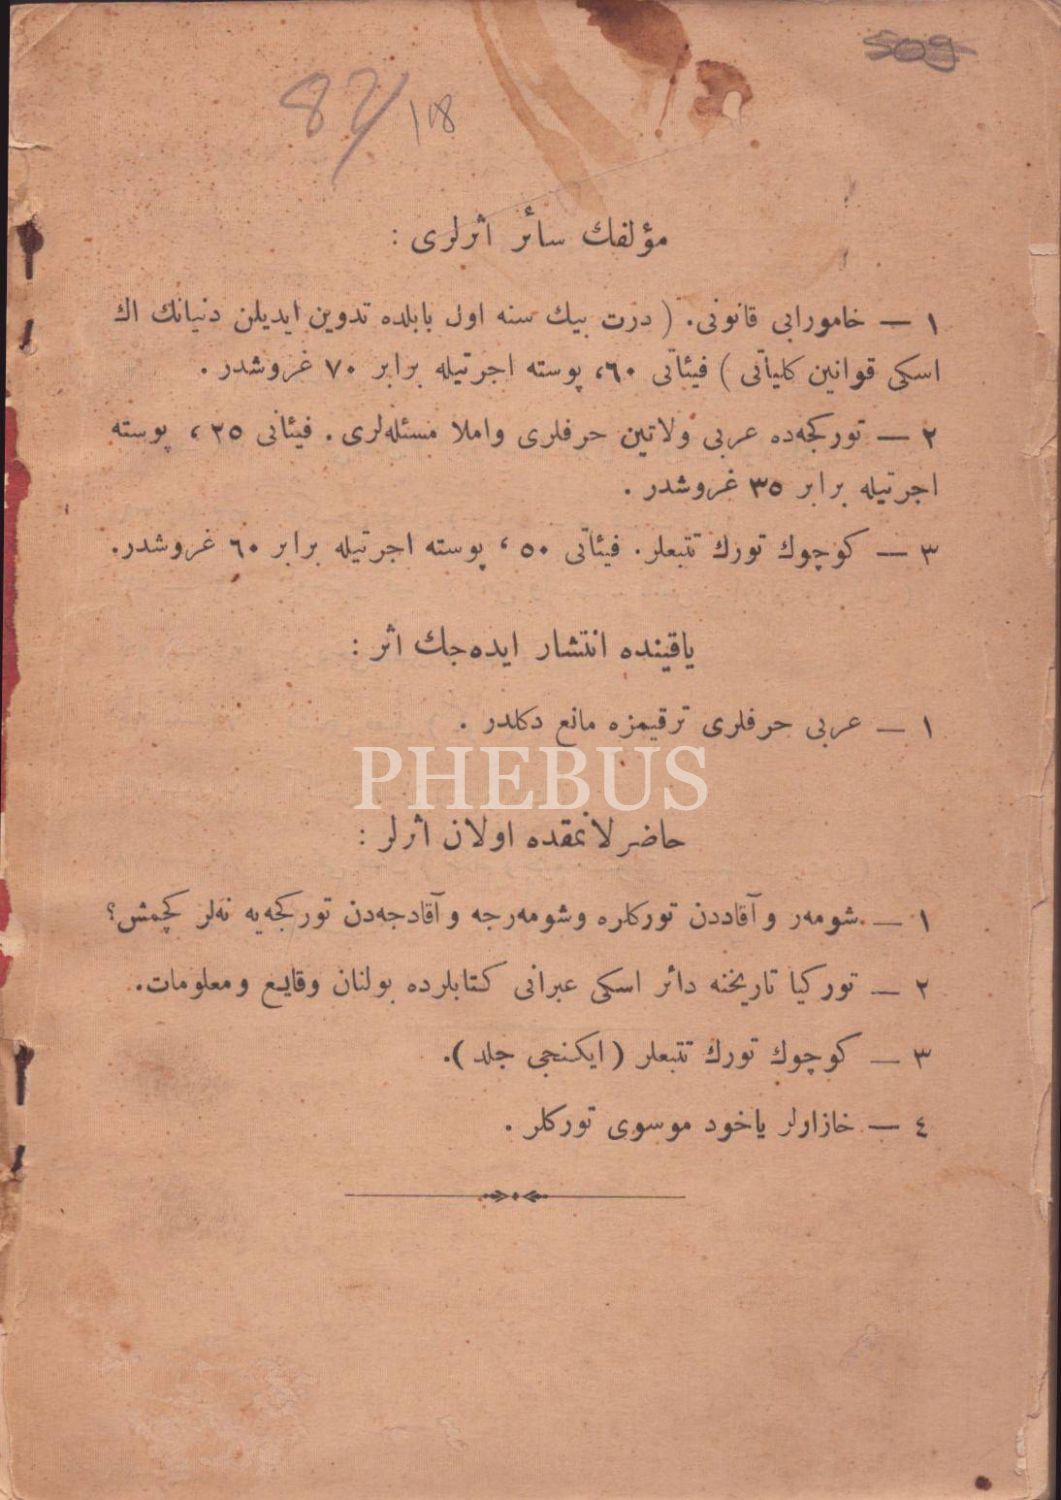 509
82/118
مؤلفك سائر اثرلری :
١ — خامورابی قانونی. ( درت بيك سنه اول بابلده تدوين ايديلن دنيانك اك
اسكی قوانين كلياتی ) فيئاتی ٦٠، پوسته اجرتيله برابر ٧٠ غروشدر .
٢ — توركجه‌ده عربی ولاتين حرفلری واملا مسئله‌لری . فيئاتی ٢٥ ، پوسته
اجرتيله برابر ٣٥ غروشدر .
٣ — كوچوك تورك تتبعلر . فيئاتی ٥٠ ، پوسته اجرتيله برابر ٦٠ غروشدر.
ياقينده انتشار ايده‌جك اثر :
١ — عربی حرفلری ترقيمزه مانع دكلدر .
PHEBUS
حاضرلانمقده اولان اثرلر :
١ — شومه‌ر و آقاددن توركلره وشومه‌رجه و آقادجه‌دن توركجه‌يه نه‌لر كچمش؟
٢ — توركيا تاريخنه دائر اسكی عبرانی كتابلرده بولنان وقايع ومعلومات.
٣ — كوچوك تورك تتبعلر ( ايكنجی جلد ).
٤ — خازارلر ياخود موسوی توركلر .